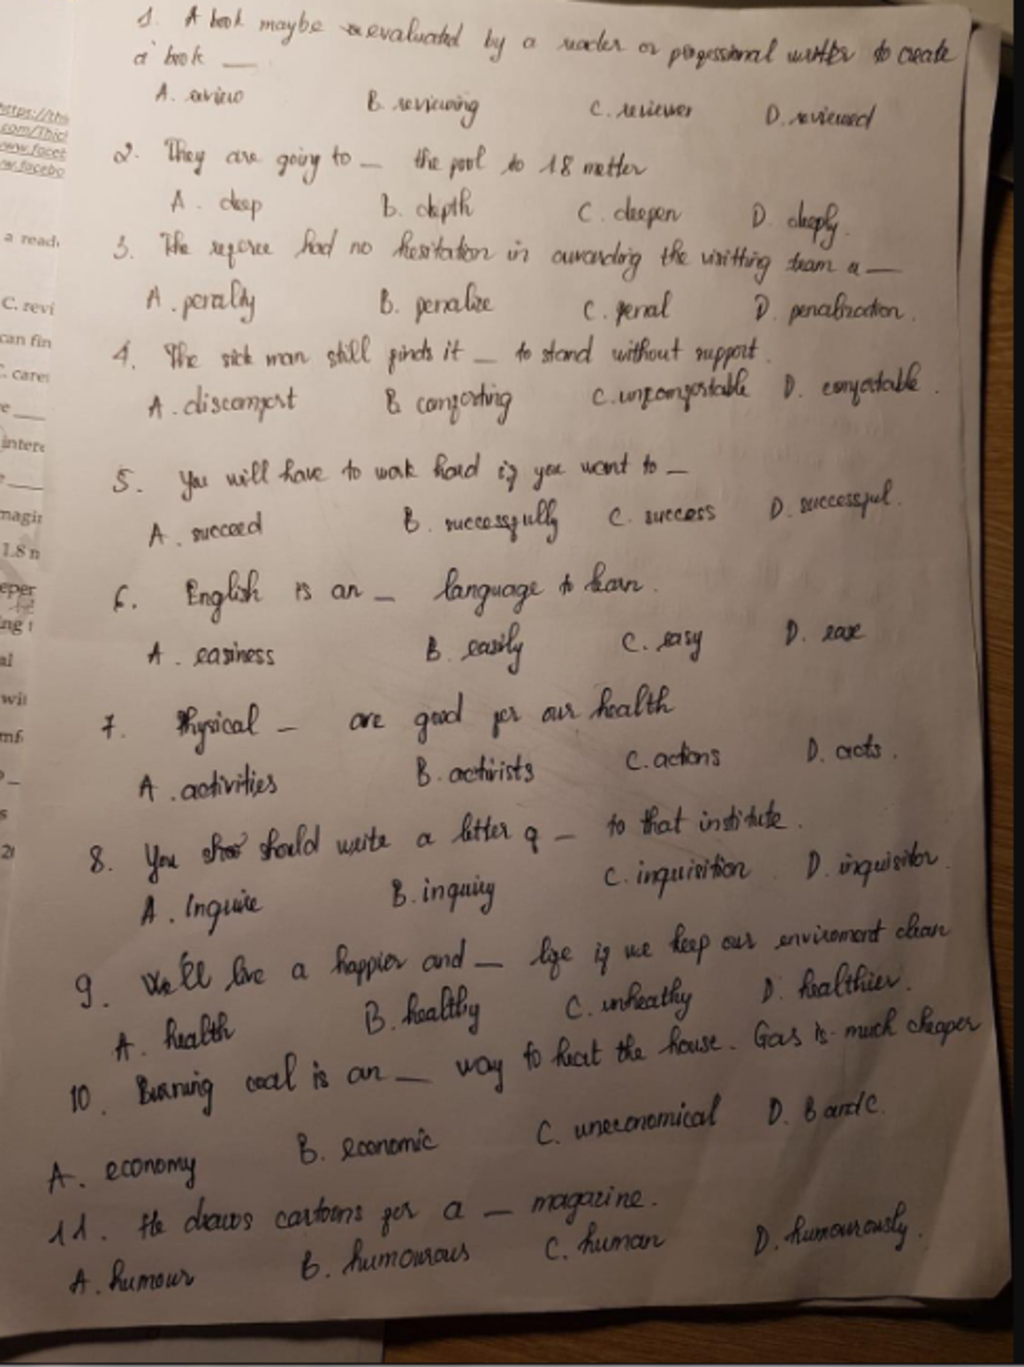 1. A book maybe evaluated by a reader or professional writter to create
a book __
A. review B. reviewing C. reviewer D. reviewed
2. They are going to _ the pool to 18 metter
A. deep B. depth C. deepen D. deeply.
3. The referee had no hesitation in awarding the visitting team a __
A. penalty B. penalize C. penal D. penalization.
4. The sick man still finds it _ to stand without support.
A. discomfort B. comforting C. uncomfortable D. comfortable.
5. You will have to work hard if you want to _
A. succeed B. successfully C. success D. successful.
6. English is an _ language to learn.
A. easiness B. easily C. easy D. ease
7. Physical _ are good for our health
A. activities B. activists C. actions D. acts.
8. You should write a letter of _ to that institute.
A. Inquire B. inquiry C. inquisition D. inquisitor
9. We'll live a happier and _ life if we keep our enviroment clean
A. health B. healthy C. unheathy D. healthier.
10. Burning coal is an _ way to heat the house. Gas is much cheaper
A. economy B. economic C. uneconomical D. B and C.
11. He draws cartoons for a _ magazine.
A. humour B. humourous C. human D. humourously.
https://this
com/Thich
www.facet
w.facebo
a read
C. revi
can fin
C. caree
intere
magin
1.8 n
eper
ing t
al
wit
mf